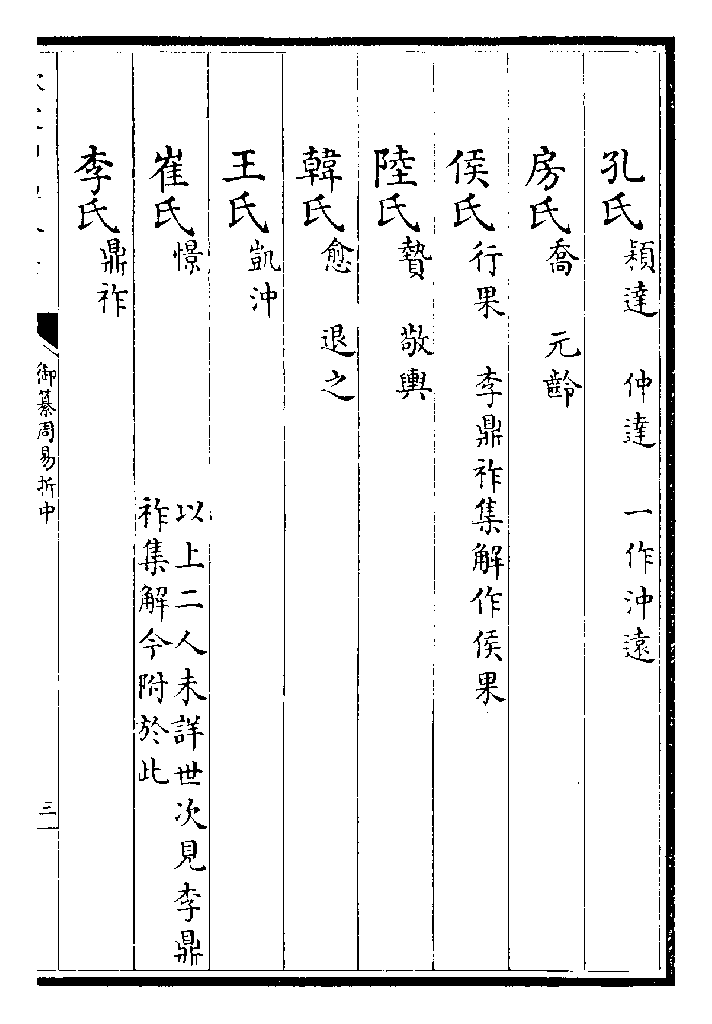 孔氏 穎達 仲達 一作沖遠
房氏 喬 元齡
侯氏 行果 李鼎祚集解作侯果
陸氏 贄 敬輿
韓氏 愈 退之
王氏 凱沖
崔氏 憬 以上二人未詳世次見李鼎
祚集解今附於此
李氏 鼎祚
御纂周易折中
三